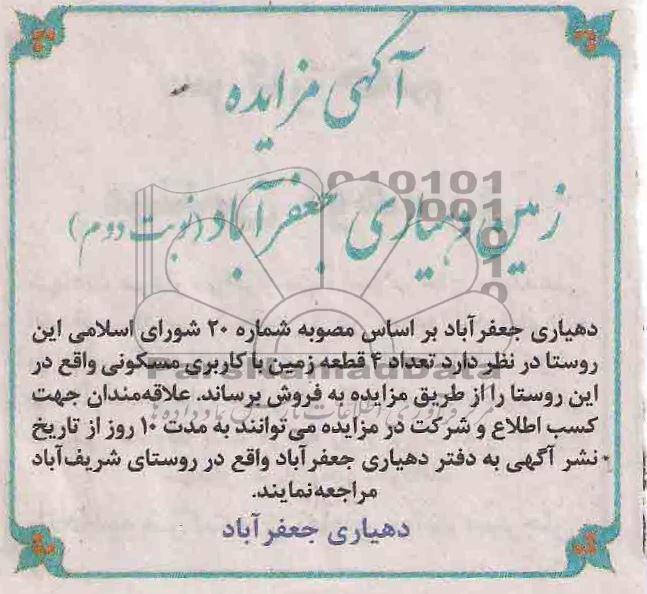 آگهی مزایده
زمین دهیاری جعفرآباد (نوبت دوم)
دهیاری جعفرآباد بر اساس مصوبه شماره ۲۰ شورای اسلامی این
روستا در نظر دارد تعداد ۴ قطعه زمین با کاربری مسکونی واقع در
این روستا را از طریق مزایده به فروش برساند. علاقه‌مندان جهت
کسب اطلاع و شرکت در مزایده می‌توانند به مدت ۱۰ روز از تاریخ
نشر آگهی به دفتر دهیاری جعفرآباد واقع در روستای شریف‌آباد
مراجعه نمایند.
دهیاری جعفرآباد